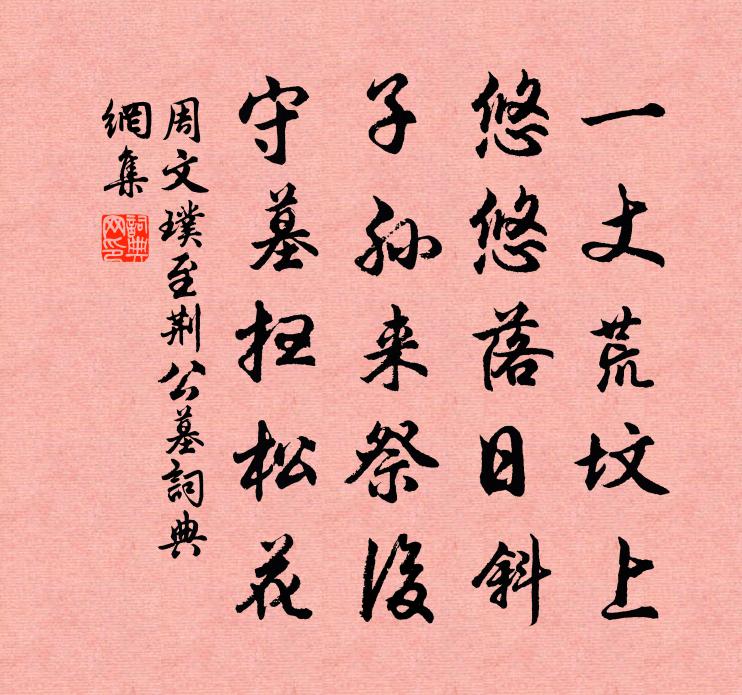 一丈荒坟上
悠悠落日斜
子孙来祭後
守墓扫松花
周文璞至荆公墓詞典
網集
詞典网印